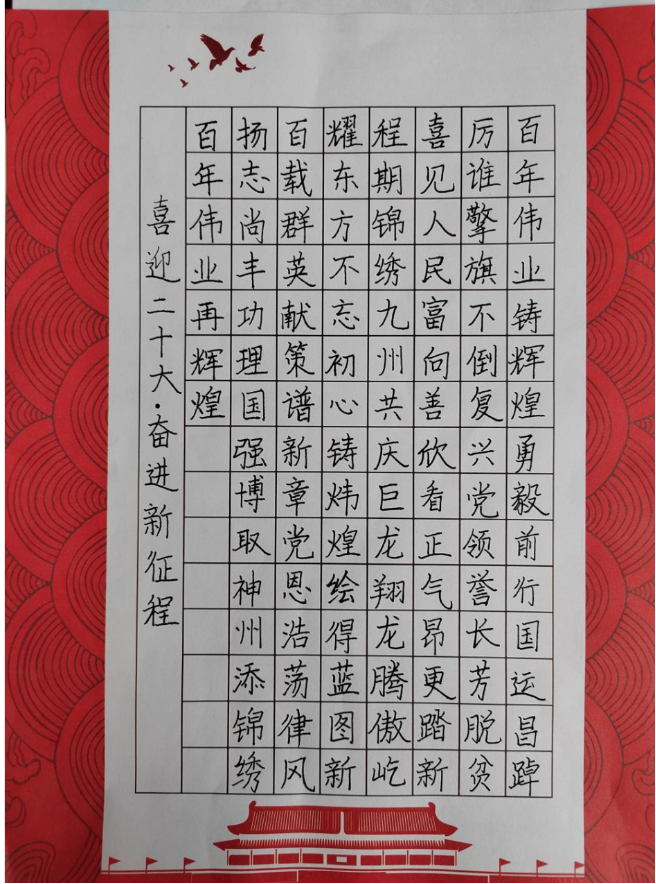 百年伟业铸辉煌勇毅前行国运昌踔
厉谁擎旗不倒复兴党领誉长芳脱贫
喜见人民富向善欣看正气昂更踏新
程期锦绣九州共庆巨龙翔龙腾傲屹
耀东方不忘初心铸炜煌绘得蓝图新
百载群英献策谱新章党恩浩荡律风
扬志尚丰功理国强博取神州添锦绣
百年伟业再辉煌
喜迎二十大·奋进新征程